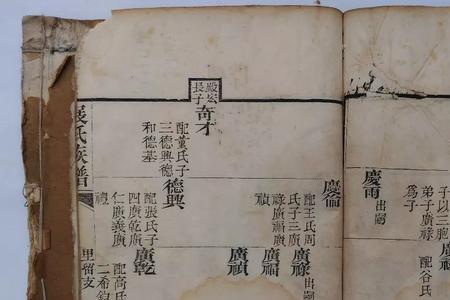 慶雨
出嗣
子以三胞
弟子廣祿
爲子
配谷氏
殿宏
長子
奇才
配董氏子
三德興德
和德基
慶嗣
配王氏周
氏子三廣
祿廣福廣
禎
廣祿
出嗣
廣福
廣禎
德興
配張氏子
四廣乾廣
仁廣義廣
廣乾
配高氏
二希鈞
張氏族譜
里留支